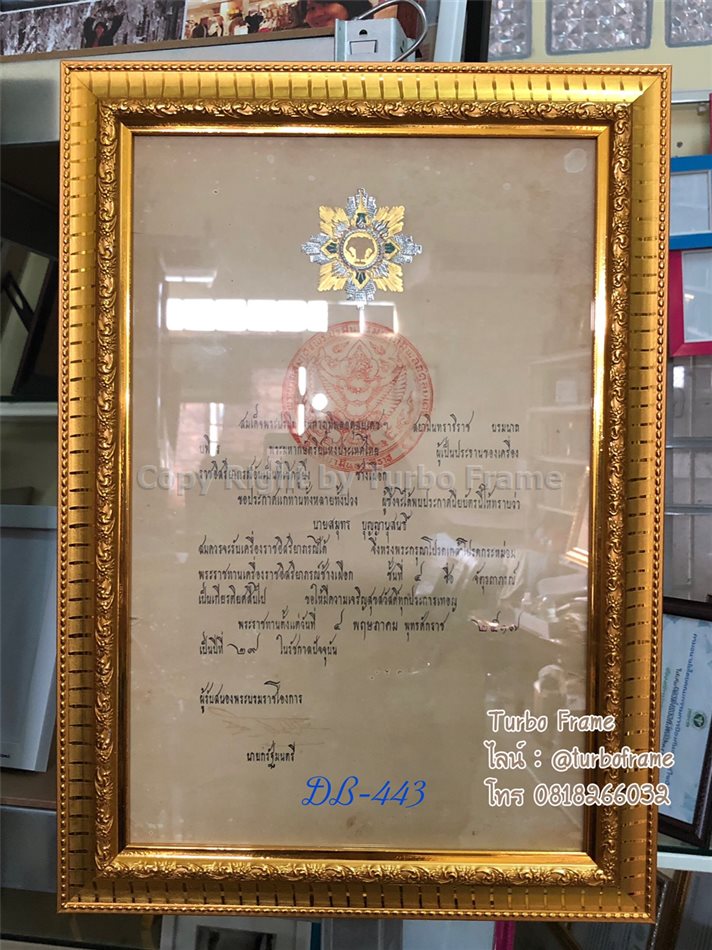 สมเด็จพระปรมินทรมหาภูมิพลอดุลยเดชฯ สยามินทราธิราช บรมนาถ
บพิตร พระมหากษัตริย์แห่งประเทศไทย ผู้เป็นประธานของเครื่อง
ราชอิสริยาภรณ์อันเป็นที่เชิดชูยิ่ง ช้างเผือก
Copy Right by Turbo Frame
ขอประกาศแก่ท่านทั้งหลายทั้งปวง ผู้ซึ่งจะได้พบประกาศนียบัตรนี้ให้ทราบว่า
นายสมุทร บุญญานุสนธิ์
สมควรจะรับเครื่องราชอิสริยาภรณ์ได้ จึ่งทรงพระกรุณาโปรดเกล้าโปรดกระหม่อม
พระราชทานเครื่องราชอิสริยาภรณ์ช้างเผือก ชั้นที่ ๔ ชื่อ จัตุรถาภรณ์
เป็นเกียรติยศสืบไป ขอให้มีความเจริญสุขสวัสดิ์ทุกประการเทอญ
พระราชทานตั้งแต่วันที่ ๔ พฤษภาคม พุทธศักราช ๒๕๑๗
เป็นปีที่ ๒๙ ในรัชกาลปัจจุบัน
ผู้รับสนองพระบรมราชโองการ
นายกรัฐมนตรี
DB-443
Turbo Frame
ไลน์ : @turboframe
โทร 0818266032